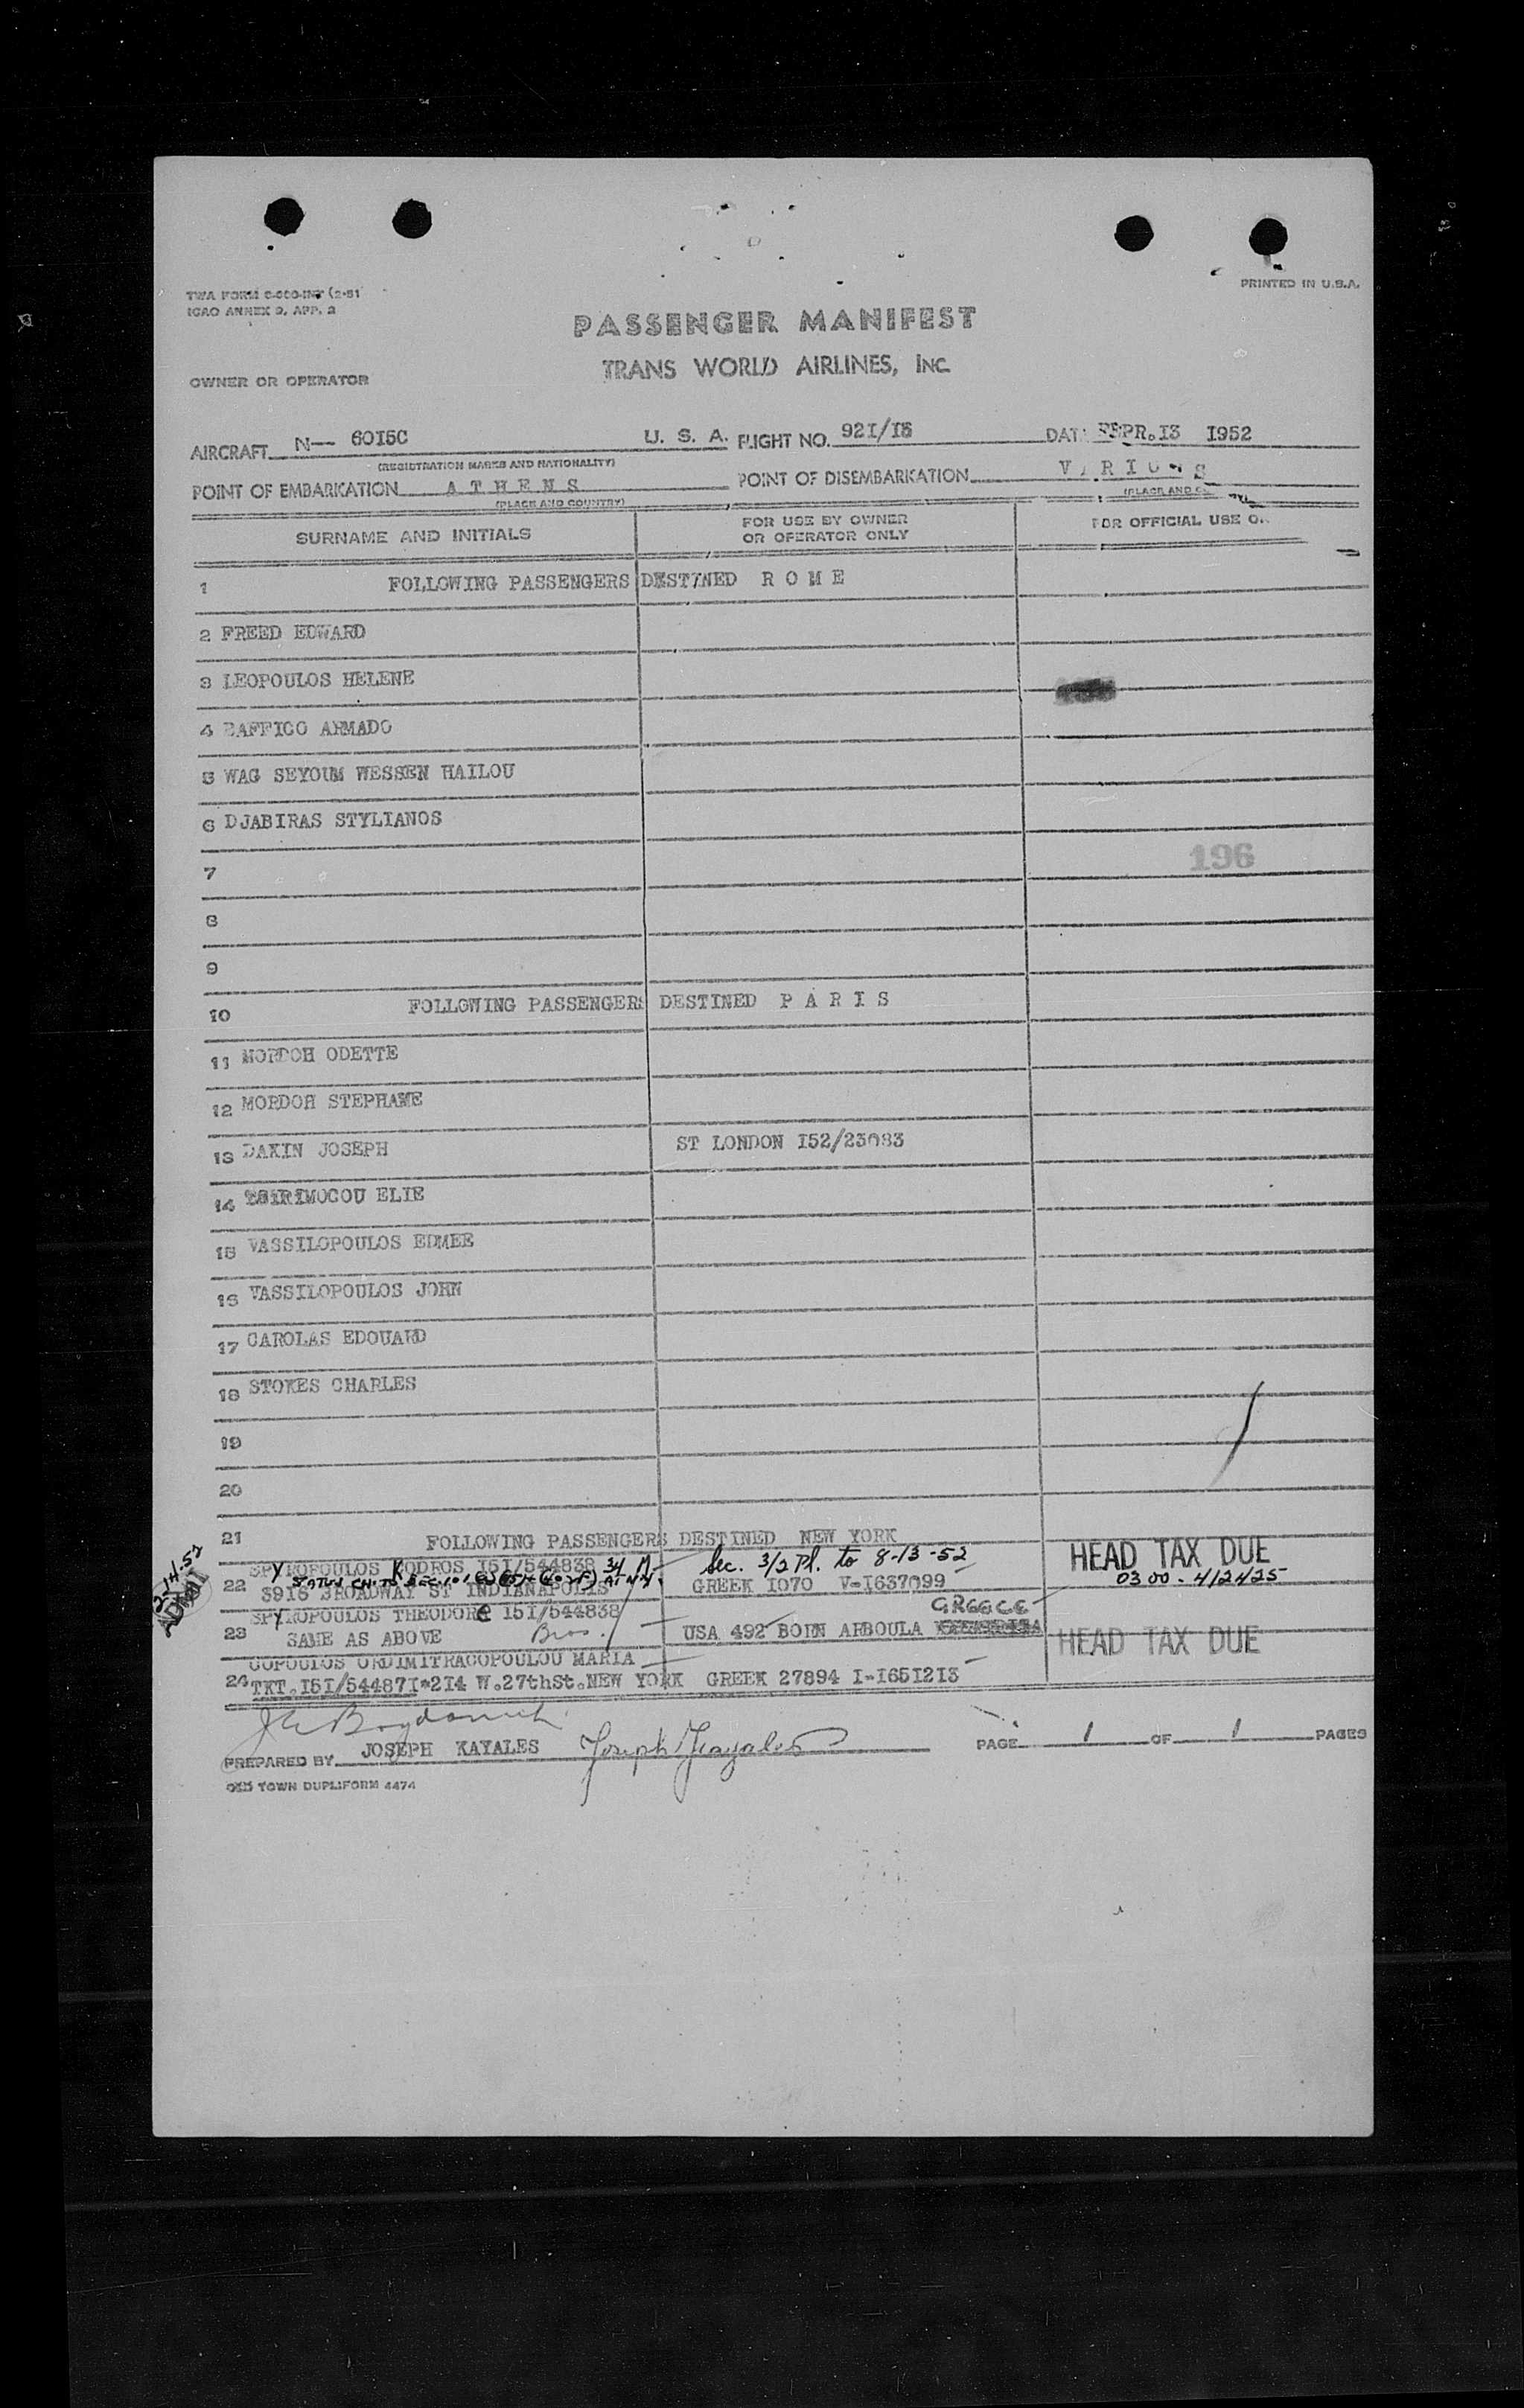 TWA FORM
ICAO ANNEX 9, APP. 2
PRINTED IN U.S.A.
PASSENGER MANIFEST
TRANS WORLD AIRLINES, INC.
OWNER OR OPERATOR
AIRCRAFT N— 60I5C U. S. A. FLIGHT NO. 92I/I5 I3 I952
(REGISTRATION MARKS AND NATIONALITY)
POINT OF EMBARKATION A T H E N S POINT OF DISEMBARKATION
(PLACE AND COUNTRY) (PLACE AND
SURNAME AND INITIALS FOR USE BY OWNER OR OPERATOR ONLY FOR OFFICIAL USE
1 FOLLOWING PASSENGERS DESTINED R O M E
2 FREED EDWARD
3 LEOPOULOS HELENE
4 BAFFICO ARMADO
5 WAG SEYOUM WESSEN HAILOU
6 DJABIRAS STYLIANOS
7 196
8
9
10 FOLLOWING PASSENGERS DESTINED P A R I S
11 MORDOH ODETTE
12 MORDOH STEPHANE
13 DAKIN JOSEPH ST LONDON I52/23083
14 TSIRIMOCOU ELIE
15 VASSILOPOULOS EDMEE
16 VASSILOPOULOS JOHN
17 CAROLAS EDOUARD
18 STOKES CHARLES
19
20
21 FOLLOWING PASSENGERS DESTINED NEW YORK
2-14-52
ADMIT
22 SPYROPOULOS KODROS I5I/544838 34 M Sec. 3/2 Pl. to 8-13-52 HEAD TAX DUE
39I6 BROADWAY ST INDIANAPOLIS GREEK I070 V-I637099 0300-412425
23 SPYROPOULOS THEODORe I5I/544838 GREECE
SAME AS ABOVE Bros. USA 492 BORN ARBOULA HEAD TAX DUE
24 MARIA
TKT.I5I/54487I*2I4 W.27thSt.NEW YORK GREEK 27894 I-I65I2I3
PREPARED BY JOSEPH KAYALES Joseph Kayales PAGE 1 OF 1 PAGES
TOWN DUPLIFORM 4474